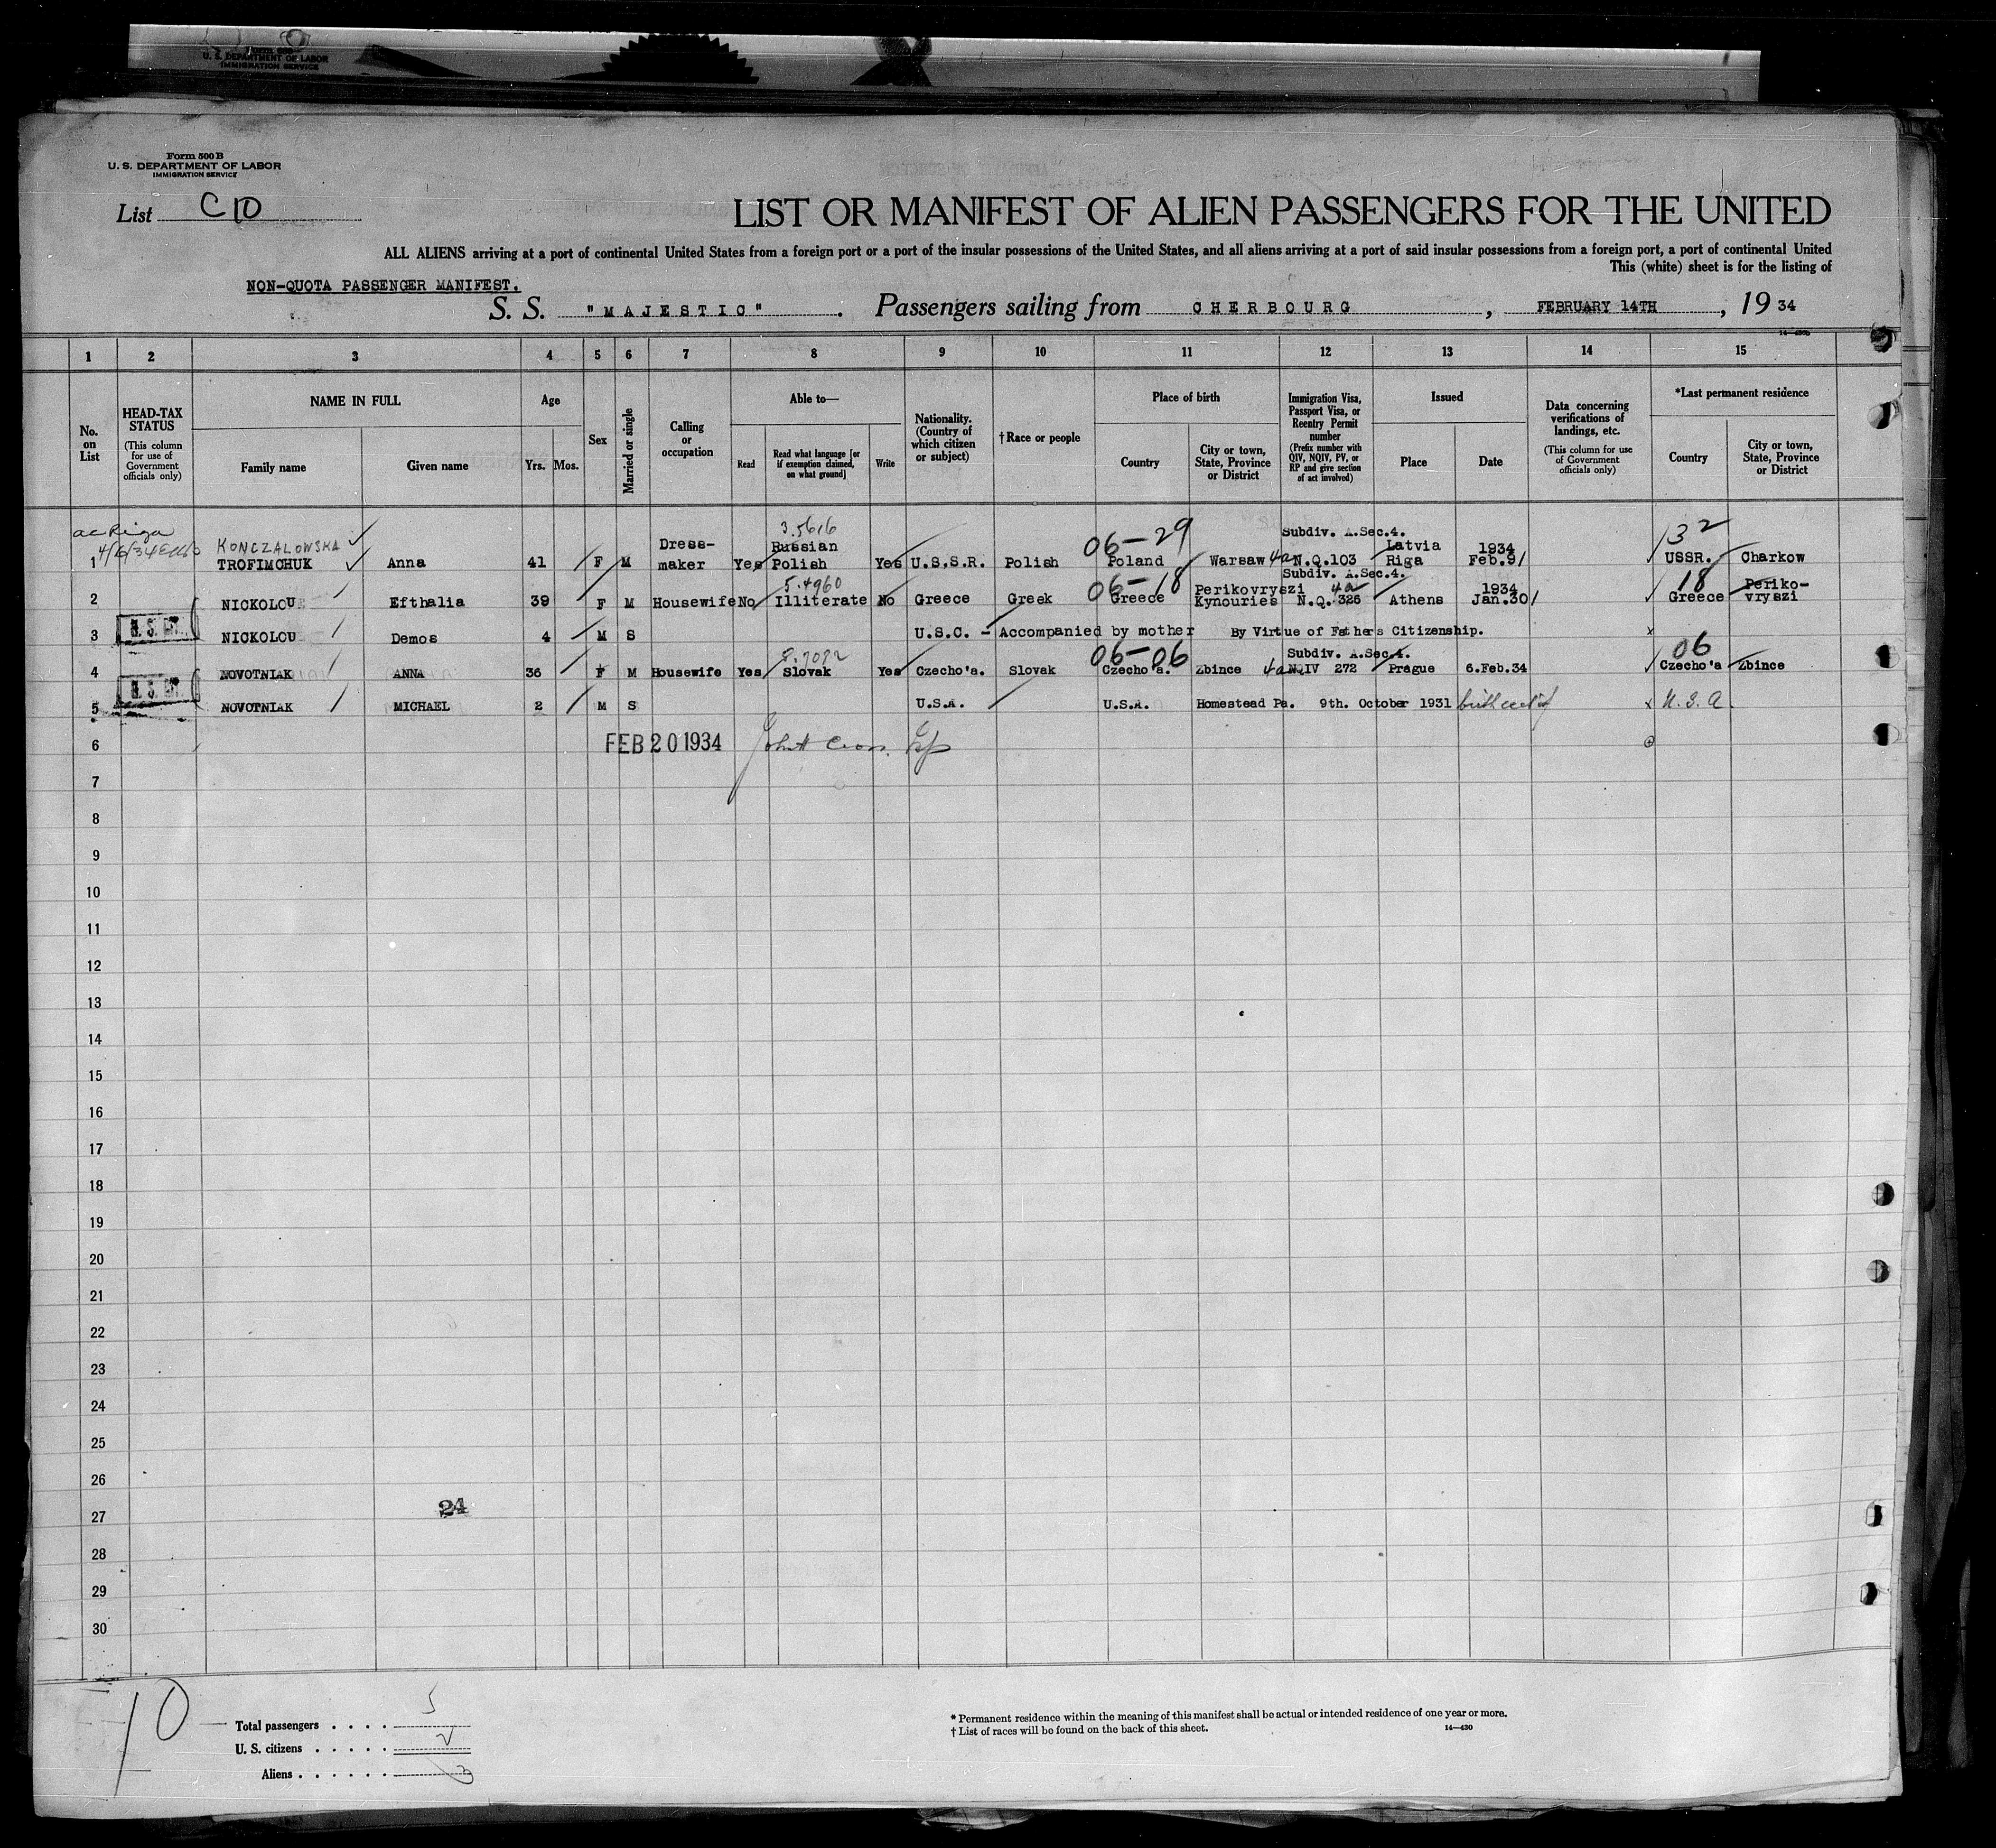 U. S. DEPARTMENT OF LABOR
IMMIGRATION SERVICE
Form 500 B
U. S. DEPARTMENT OF LABOR
IMMIGRATION SERVICE
List C 10
LIST OR MANIFEST OF ALIEN PASSENGERS FOR THE UNITED
ALL ALIENS arriving at a port of continental United States from a foreign port or a port of the insular possessions of the United States, and all aliens arriving at a port of said insular possessions from a foreign port, a port of continental United
This (white) sheet is for the listing of
NON-QUOTA PASSENGER MANIFEST.
S. S. "MAJESTIC". Passengers sailing from CHERBOURG, FEBRUARY 14TH, 19 34
14—430b
1 2 3 4 5 6 7 8 9 10 11 12 13 14 15
No. on List
HEAD-TAX STATUS
(This column for use of Government officials only)
NAME IN FULL
Family name Given name
Age
Yrs. Mos.
Sex
Married or single
Calling or occupation
Able to—
Read
Read what language [or if exemption claimed, on what ground]
Write
Nationality. (Country of which citizen or subject)
†Race or people
Place of birth
Country
City or town, State, Province or District
Immigration Visa, Passport Visa, or Reentry Permit number
(Prefix number with QIV, NQIV, PV, or RP and give section of act involved)
Issued
Place Date
Data concerning verifications of landings, etc.
(This column for use of Government officials only)
*Last permanent residence
Country
City or town, State, Province or District
Riga 3.5616 06-29 Subdiv. A.Sec.4. 32
KONCZALOWSKA Dress- Russian Latvia 1934
1 TROFIMCHUK Anna 41 F M maker Yes Polish Yes U.S.S.R. Polish Poland Warsaw 4a N.Q.103 Riga Feb.9 USSR. Charkow
5.4960 06-18 Perikovryszi Subdiv. A.Sec.4. 4a 1934 18 Periko-
2 NICKOLOU Efthalia 39 F M Housewife No Illiterate No Greece Greek Greece Kynouries N.Q. 326 Athens Jan.30 Greece vryszi
3 NICKOLOU Demos 4 M S U.S.C. - Accompanied by mother By Virtue of Fathers Citizenship. x
8.7092 06-06 Subdiv. A.Sec.4. 06
4 NOVOTNIAK ANNA 36 F M Housewife Yes Slovak Yes Czecho'a. Slovak Czecho'a. Zbince 4a NQIV 272 Prague 6.Feb.34 Czecho'a Zbince
5 NOVOTNIAK MICHAEL 2 M S U.S.A. U.S.A. Homestead Pa. 9th. October 1931 birth certif x U.S.A.
6 FEB 20 1934 John H Cross
7
8
9
10
11
12
13
14
15
16
17
18
19
20
21
22
23
24
25
26
27 24
28
29
30
10
Total passengers . . . . 5
U. S. citizens . . . . . 2
Aliens . . . . . . 3
* Permanent residence within the meaning of this manifest shall be actual or intended residence of one year or more.
† List of races will be found on the back of this sheet.
14—430